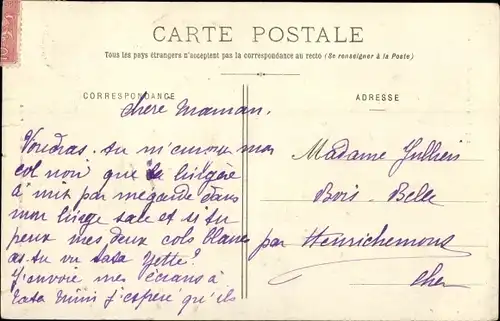 CARTE POSTALE
Tous les pays étrangers n'acceptent pas la correspondance au recto (Se renseigner à la Poste)
CORRESPONDANCE
ADRESSE
chère maman,
Voudras-tu m'envoyer mon
col noir que
a mis par mégarde dans
mon linge sale et si tu
peux mes deux cols blancs
as-tu vu tata Yette?
J'envoie mes écrans à
tata mimi j'espère qu'ils
Madame Jullien
Bois-Belle
par Henrichemont
Cher